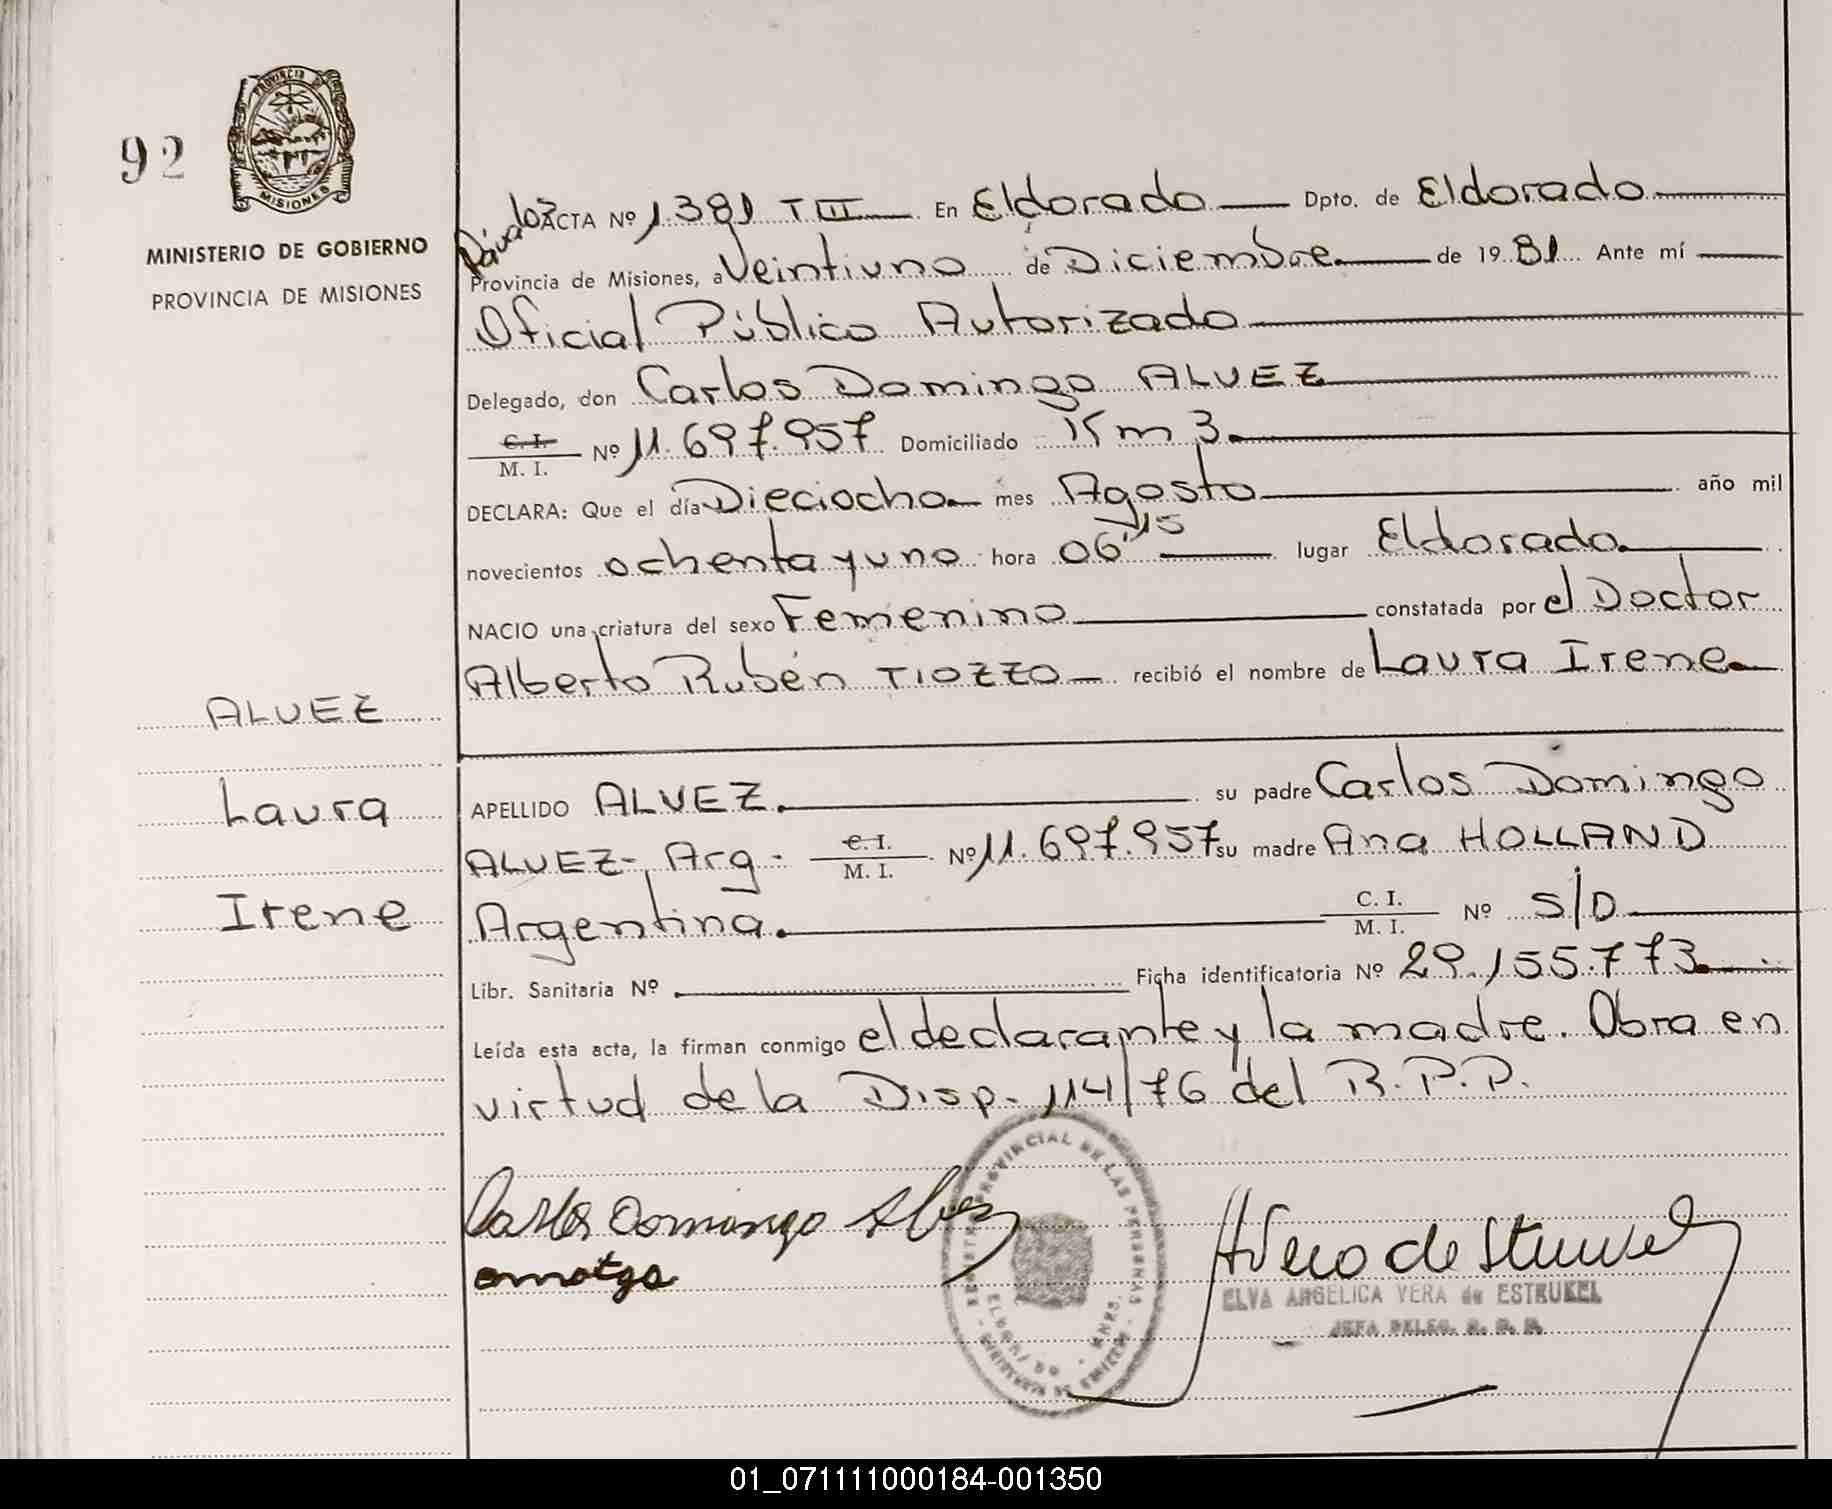 92
PROVINCIA DE
MISIONES
MINISTERIO DE GOBIERNO
PROVINCIA DE MISIONES
ALVEZ
Laura
Irene
ACTA Nº 1.381 T III En Eldorado Dpto. de Eldorado
Provincia de Misiones, a Veintiuno de Diciembre de 1981 Ante mí
Oficial Público Autorizado
Delegado, don Carlos Domingo ALVEZ
C. I.
M. I. Nº 11.697.957 Domiciliado Km 3.
DECLARA: Que el día Dieciocho mes Agosto año mil
novecientos ochenta y uno hora 06'15 lugar Eldorado.
NACIO una criatura del sexo Femenino constatada por el Doctor
Alberto Rubén TIOZZO recibió el nombre de Laura Irene
APELLIDO ALVEZ. su padre Carlos Domingo
ALVEZ-, Arg - C. I.
M. I. Nº 11.697.957 su madre Ana HOLLAND
Argentina. C. I.
M. I. Nº S/D
Libr. Sanitaria Nº Ficha identificatoria Nº 29.155.773
Leída esta acta, la firman conmigo el declarante y la madre. Obra en
virtud de la Disp. 114/76 del R.P.P.
Carlos Domingo Alvez
REGISTRO PROVINCIAL DE LAS PERSONAS
ELDORADO - MNES.
ELVA ANGELICA VERA de ESTRUKEL
JEFA DELEG. R. P. P.
01_071111000184-001350